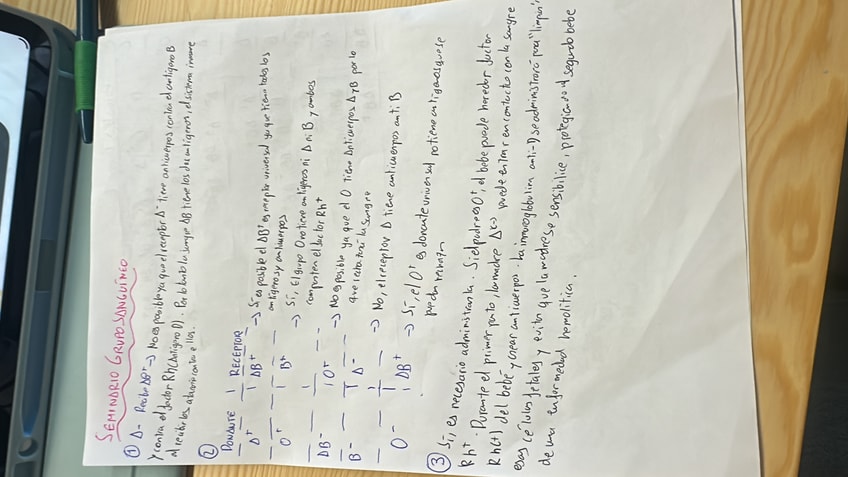 SEMINARIO GRUPO SANGUÍNEO
① A- Recibe AB+ → No es posible ya que el receptor A- tiene anticuerpos contra el antígeno B
y contra el factor Rh (antígeno D). Por lo tanto la sangre AB tiene los dos antígenos, el sistema inmune
al recibirlos atacará contra ellos.
②
DONANTE | RECEPTOR
A+ | AB+ → Sí es posible el AB+ es receptor universal ya que tiene todos los
antígenos y anticuerpos
O+ | B+ → Sí, El grupo O no tiene antígenos ni A ni B y ambos
comparten el factor Rh+
AB- | O+ → No es posible ya que el O tiene anticuerpos A y B por lo
que rechazará la sangre
B- | A- → No, el receptor A tiene anticuerpos anti B
O- | AB+ → Sí, el O- es donante universal no tiene antígenos que se
puedan rechazar
③ Sí, es necesario administrarla. Si el padre es O+, el bebé puede heredar factor
Rh+. Durante el primer parto, la madre puede entrar en contacto con la sangre
Rh(+) del bebé y crear anticuerpos. La inmunoglobulina anti-D se administrará para "limpiar"
esas células fetales y evitar que la madre se sensibilice, protegiendo al segundo bebé
de una enfermedad hemolítica.